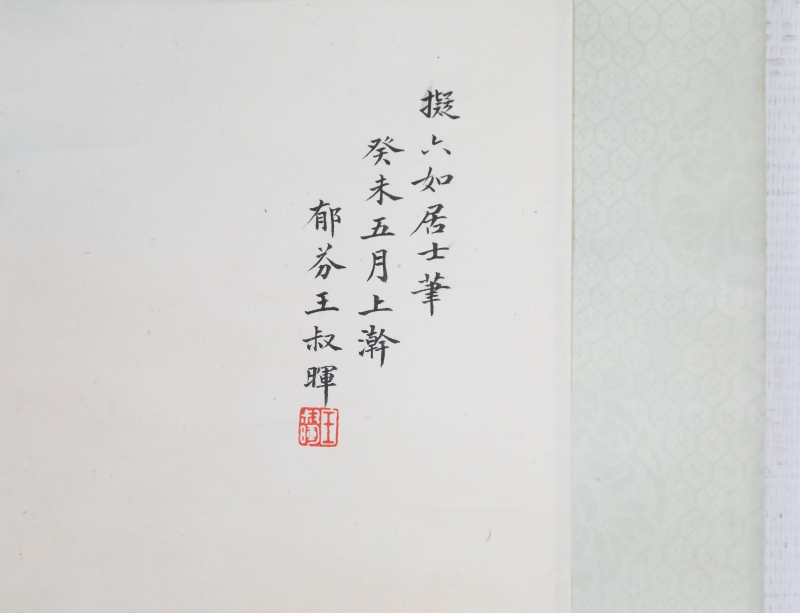 擬六如居士筆
癸未五月上澣
郁芬王叔暉
王暉